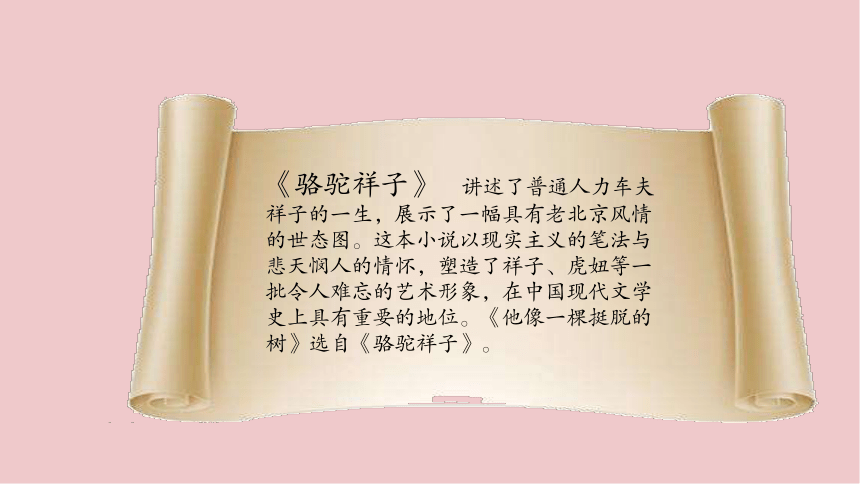 《骆驼祥子》 讲述了普通人力车夫
祥子的一生，展示了一幅具有老北京风情
的世态图。这本小说以现实主义的笔法与
悲天悯人的情怀，塑造了祥子、虎妞等一
批令人难忘的艺术形象，在中国现代文学
史上具有重要的地位。《他像一棵挺脱的
树》选自《骆驼祥子》。